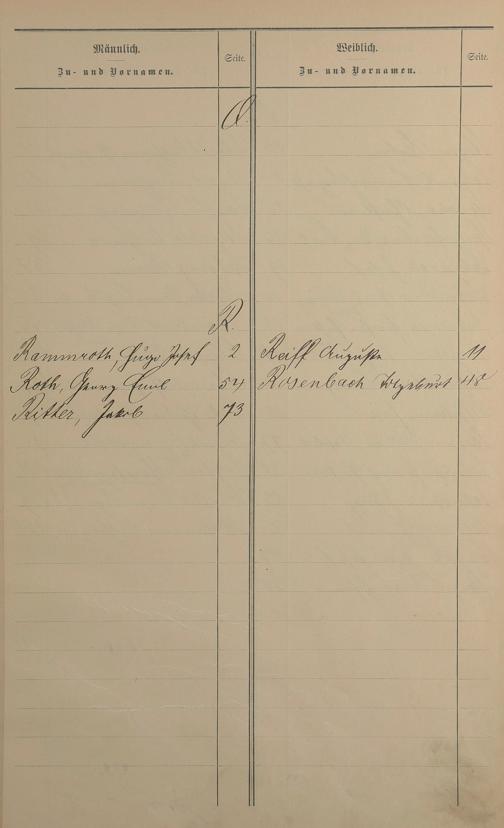 Männlich.
Zu- und Vornamen.
Seite.
Weiblich.
Zu- und Vornamen.
Seite.
Q.
R.
Rammroth, Hugo Josef 2 Reiff Auguste 11
Roth, Georg Emil 54 Rosenbach 48
Ritter, Jakob 73